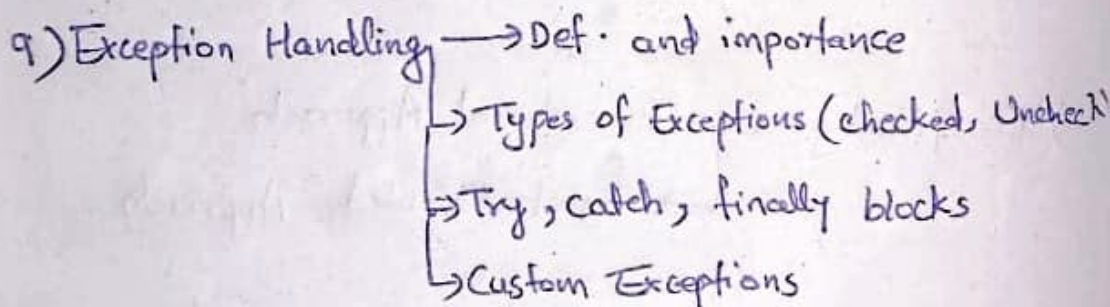 9) Exception Handling → Def. and importance
↳ Types of Exceptions (checked, Uncheck)
↳ Try, catch, finally blocks
↳ Custom Exceptions